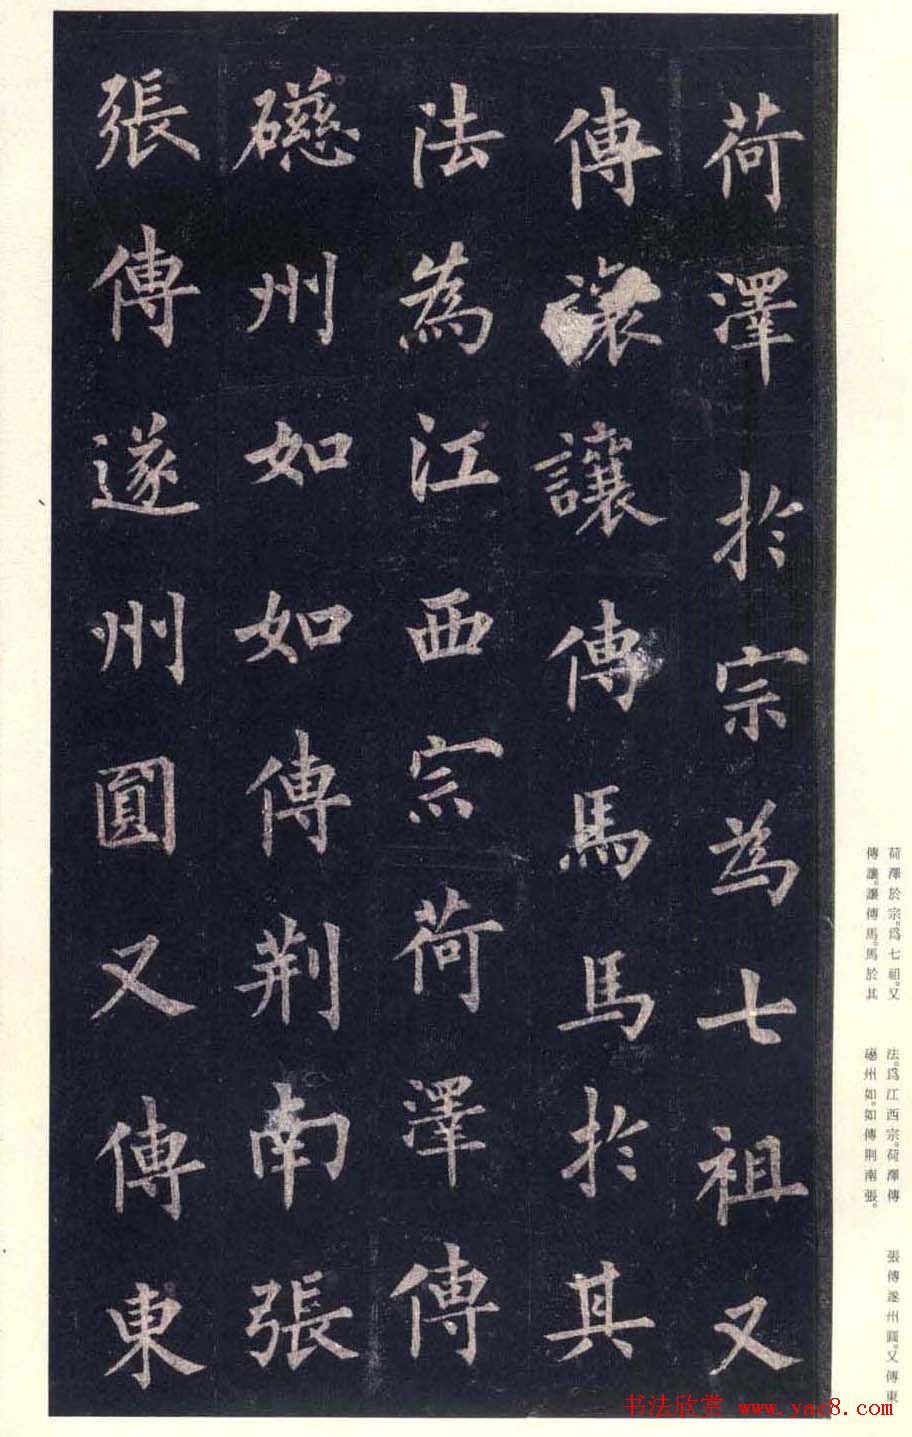 荷澤於宗為七祖又
傳讓讓傳馬馬於其
法為江西宗荷澤傳
礠州如如傳荆南張
張傳遂州圓又傳東
荷澤於宗。爲七祖。又
傳讓。讓傳馬。馬於其
法。爲江西宗。荷澤傳
磁州如。如傳荆南張。
張傳遂州圓。又傳東
书法欣赏 www.yac8.com